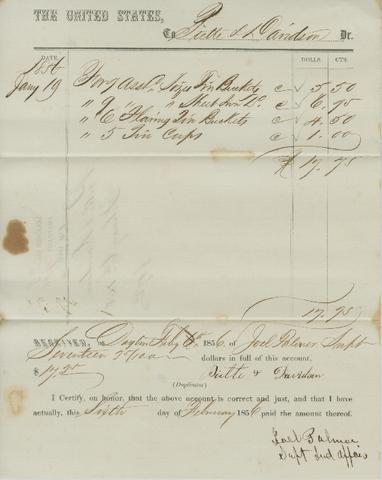 THE UNITED STATES,
To Tuttle & Davidson Dr.
DATE. DOLLS. CTS.
1856
Jany 19 For 9 Assd. Sizes Tin Buckets c 5.50
" " " Sheet Iron Do. c 6.75
" 6 Flaring Tin Buckets c 4.50
" 5 Tin Cups c 1.00
$ 17.75
17.75
RECEIVED, on Dayton Feby 6th 1856, of Joel Palmer Supt
Seventeen 75/100 dollars in full of this account.
$ 17.75 Tuttle & Davidson
(Duplicates)
I Certify, on honor, that the above account is correct and just, and that I have
actually, this Sixth day of February 1856 paid the amount thereof.
Joel Palmer
Supt Ind Affairs